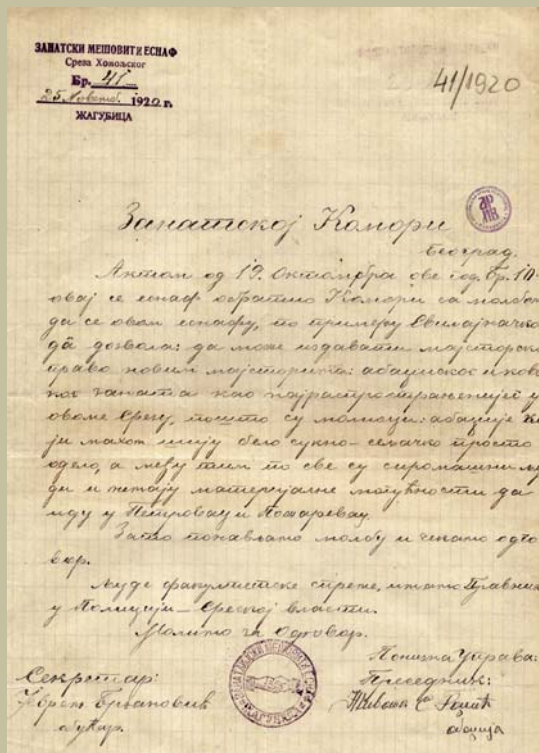 ЗАНАТСКИ МЕШОВИТИ ЕСНАФ
Среза Хомољског
Бр. 41
25 Новемб. 1920 г.
ЖАГУБИЦА
41/1920
Занатској Комори
Београд.
Актом од 19. Октомбра ове год. Бр.
овај се еснаф обратио Комори са молбом
да се овом еснафу, по примеру Свилајначког
да дозвола: да може издавати мајсторско
право новим мајсторима: абаџиског и
ког заната као најраспрострањенијег у
овоме срезу, пошто су молиоци: абаџије
ји махом шију бело сукно - сељачко просто
одело, а међу тим по све су сиромашни љу
ди и немају материјалне могућности да
иду у Петровац и Пожаревац.
Зато понављамо молбу и чекамо одго
вор.
Људе факултетске спреме, имамо
у Полицији - Среској власти.
Молимо за Одговор.
Понизна Управа:
Секретар:
Председник:
абаџија